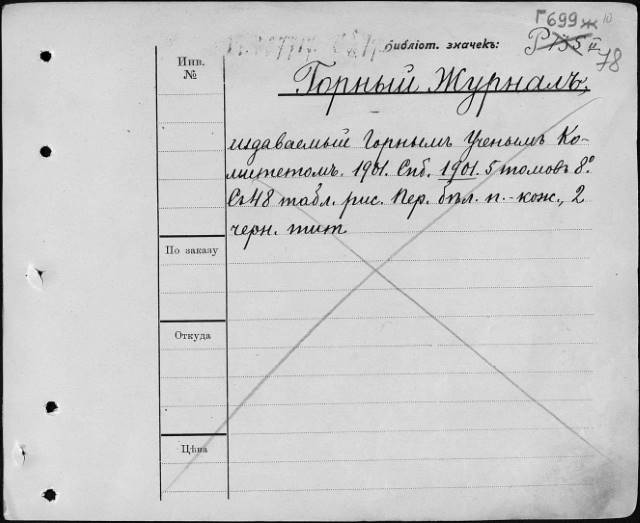 Г699ж 10
Библіот. значекъ: Р 135 II
78
Инв.
№
Горный Журналъ,
издаваемый Горнымъ Ученымъ Ко-
митетомъ. 1901. Спб. 1901. 5 томовъ 8º
Съ 48 табл. рис. Пер. бѣл. п.-кож., 2
черн. тит
По заказу
Откуда
Цѣна